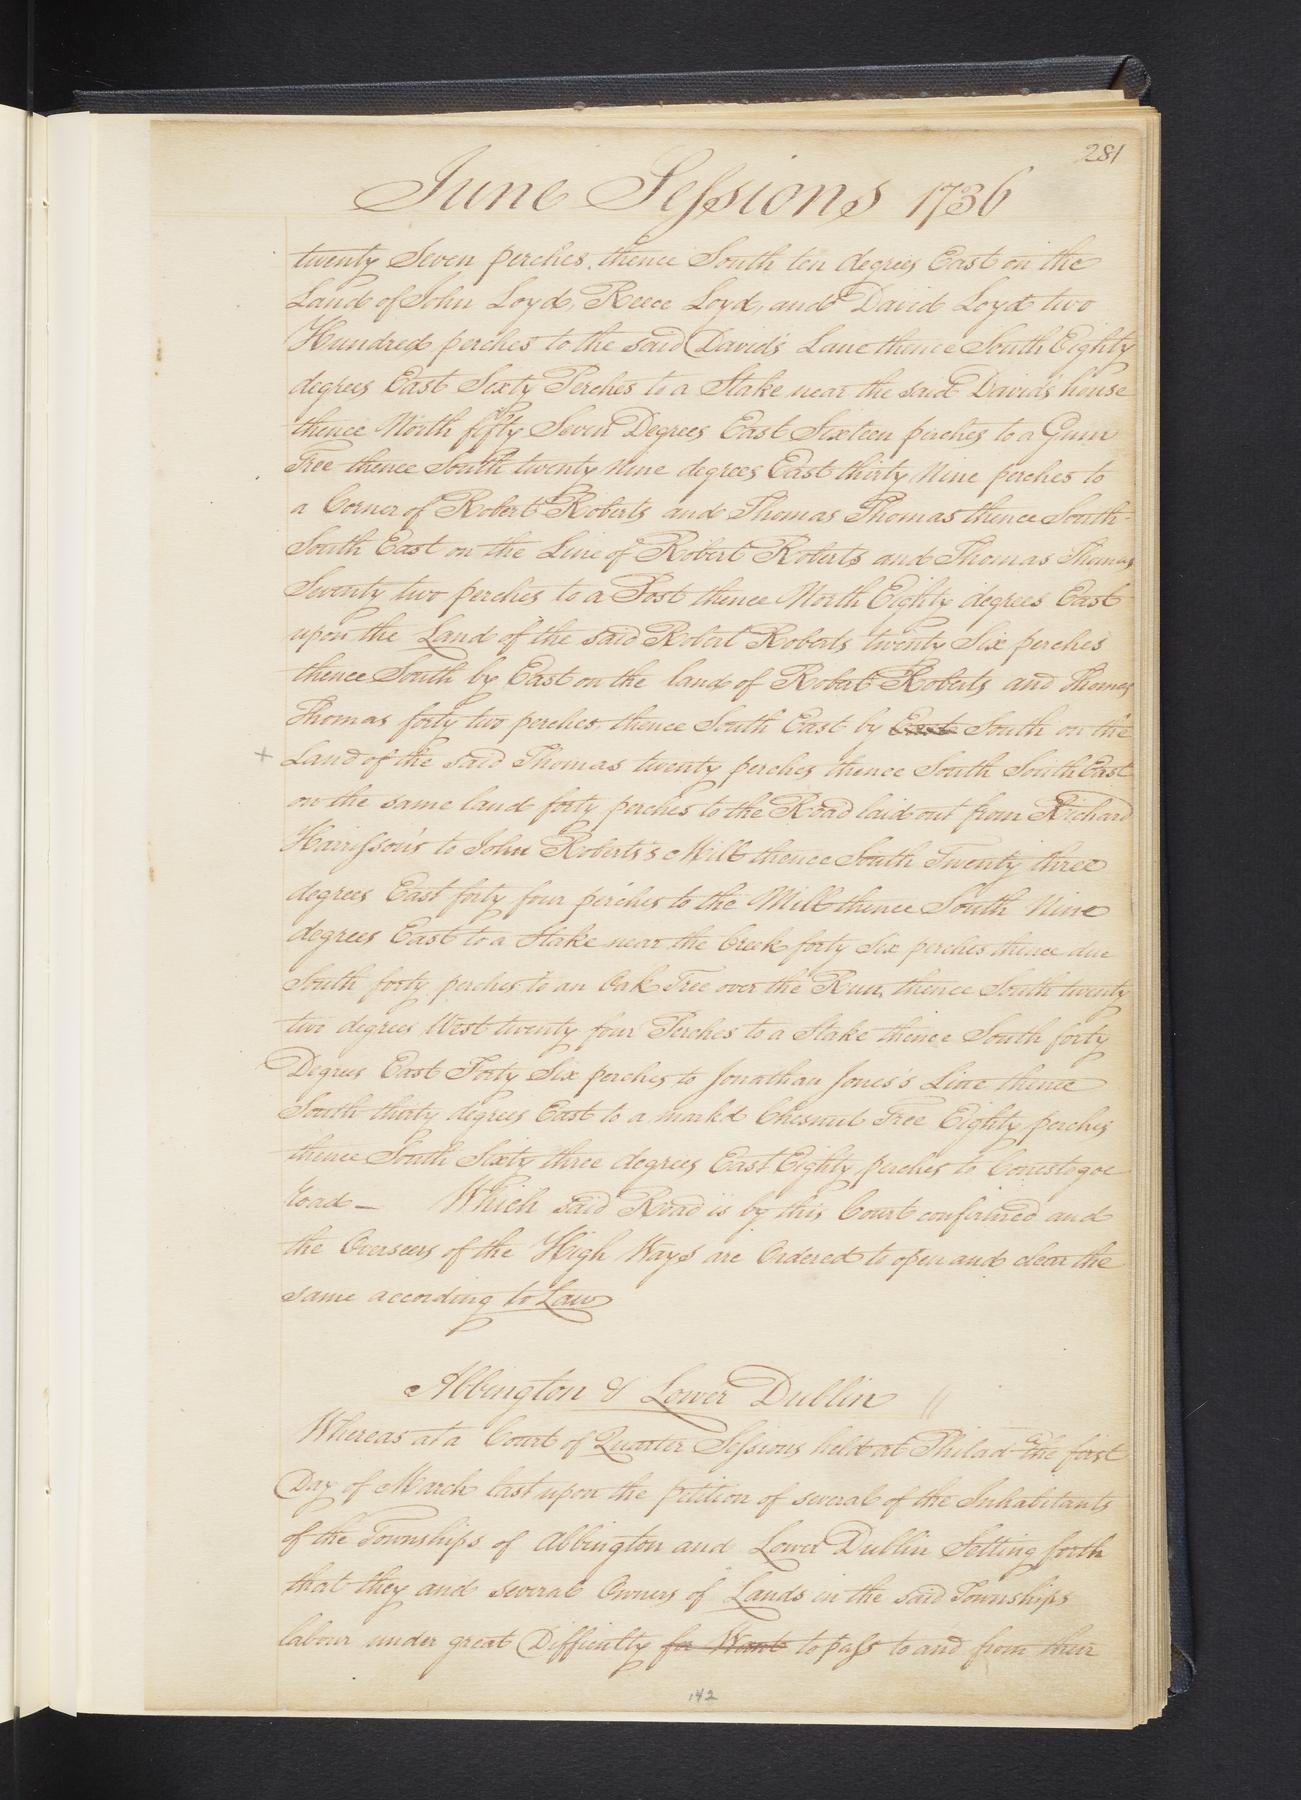 281
June Sessions 1736
twenty Seven perches thence South ten degrees East on the
Land of John Loyd, Reece Loyd, and David Loyd two
Hundred perches to the said David's Lane thence South Eighty
degrees East Sixty Perches to a Stake near the said Davids house
thence North fifty Seven Degrees East Sixteen perches to a Gum
Tree thence South twenty Nine degrees East thirty Nine perches to
a Corner of Robert Roberts and Thomas Thomas thence South
South East on the Line of Robert Roberts and Thomas Thomas
Seventy two perches to a Post thence North Eighty degrees East
upon the Land of the said Robert Roberts twenty Six perches
thence South by East on the land of Robert Roberts and Thomas
Thomas forty two perches thence South East by East South on the
+ Land of the said Thomas twenty perches thence South South East
on the same land forty perches to the Road laid out from Richard
Harrisson's to John Roberts's Mill thence South Twenty three
degrees East forty four perches to the Mill thence South Nine
degrees East to a Stake near the Creek forty Six perches thence due
South forty perches to an Oak Tree over the Run, thence South twenty
two degrees West twenty four Perches to a Stake thence South forty
Degrees East Forty Six perches to Jonathan Jones's Line thence
South thirty degrees East to a markd Chesnut Tree Eighty perches
thence South Sixty three degrees East Eighty perches to Conestogoe
road — Which said Road is by this Court confirmed and
the Overseers of the High Ways are Ordered to open and clear the
same according to Law
Abbington & Lower Dublin //
Whereas at a Court of Quarter Sessions held at Philad the first
Day of March last upon the petition of several of the Inhabitants
of the Townships of Abbington and Lower Dublin Setting forth
that they and several Owners of Lands in the said Townships
labour under great Difficulty for Want to pass to and from their
142